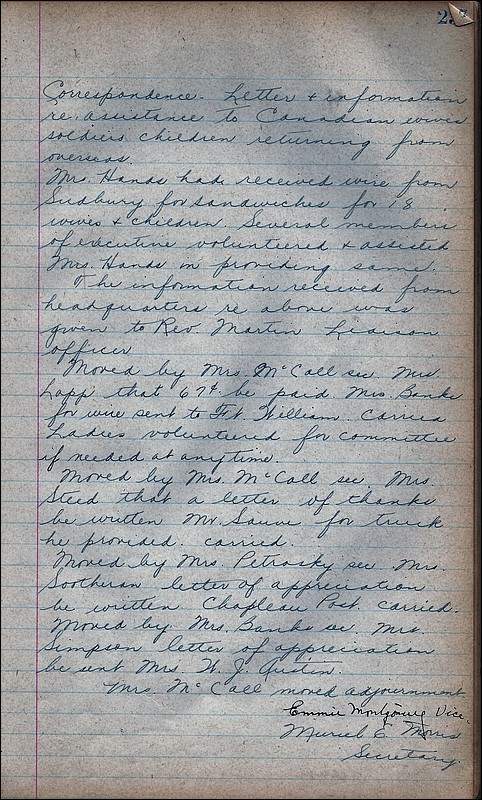 Correspondence - Letter + information
re. assistance to Canadian wives
soldiers children returning from
overseas.
Mrs. Hands had received wire from
Sudbury for sandwiches for 18
wives + children. Several members
of executive voluntiered + assisted
Mrs. Hands in providing same.
The information received from
headquarters re above was
given to Rev. Martin Liaison
officer
Moved by Mrs. McCall sec Mrs.
Lapp that 67¢ be paid Mrs. Banks
for wire sent to Ft. William. Carried
Ladies volunteered for committee
if needed at anytime.
Moved by Mrs. McCall sec. Mrs.
Steed that a letter of thanks
be written Mr. Sauve for truck
he provided. carried.
Moved by Mrs. Petrosky sec Mrs.
Sootheran letter of appreciation
be written Chapleau Post. carried.
Moved by Mrs. Banks sec Mrs.
Simpson letter of appreciation
be sent Mrs. W. J. Austin.
Mrs. McCall moved adjournment
Emmie Montgomery Vice.
Muriel E. Morris
Secretary.